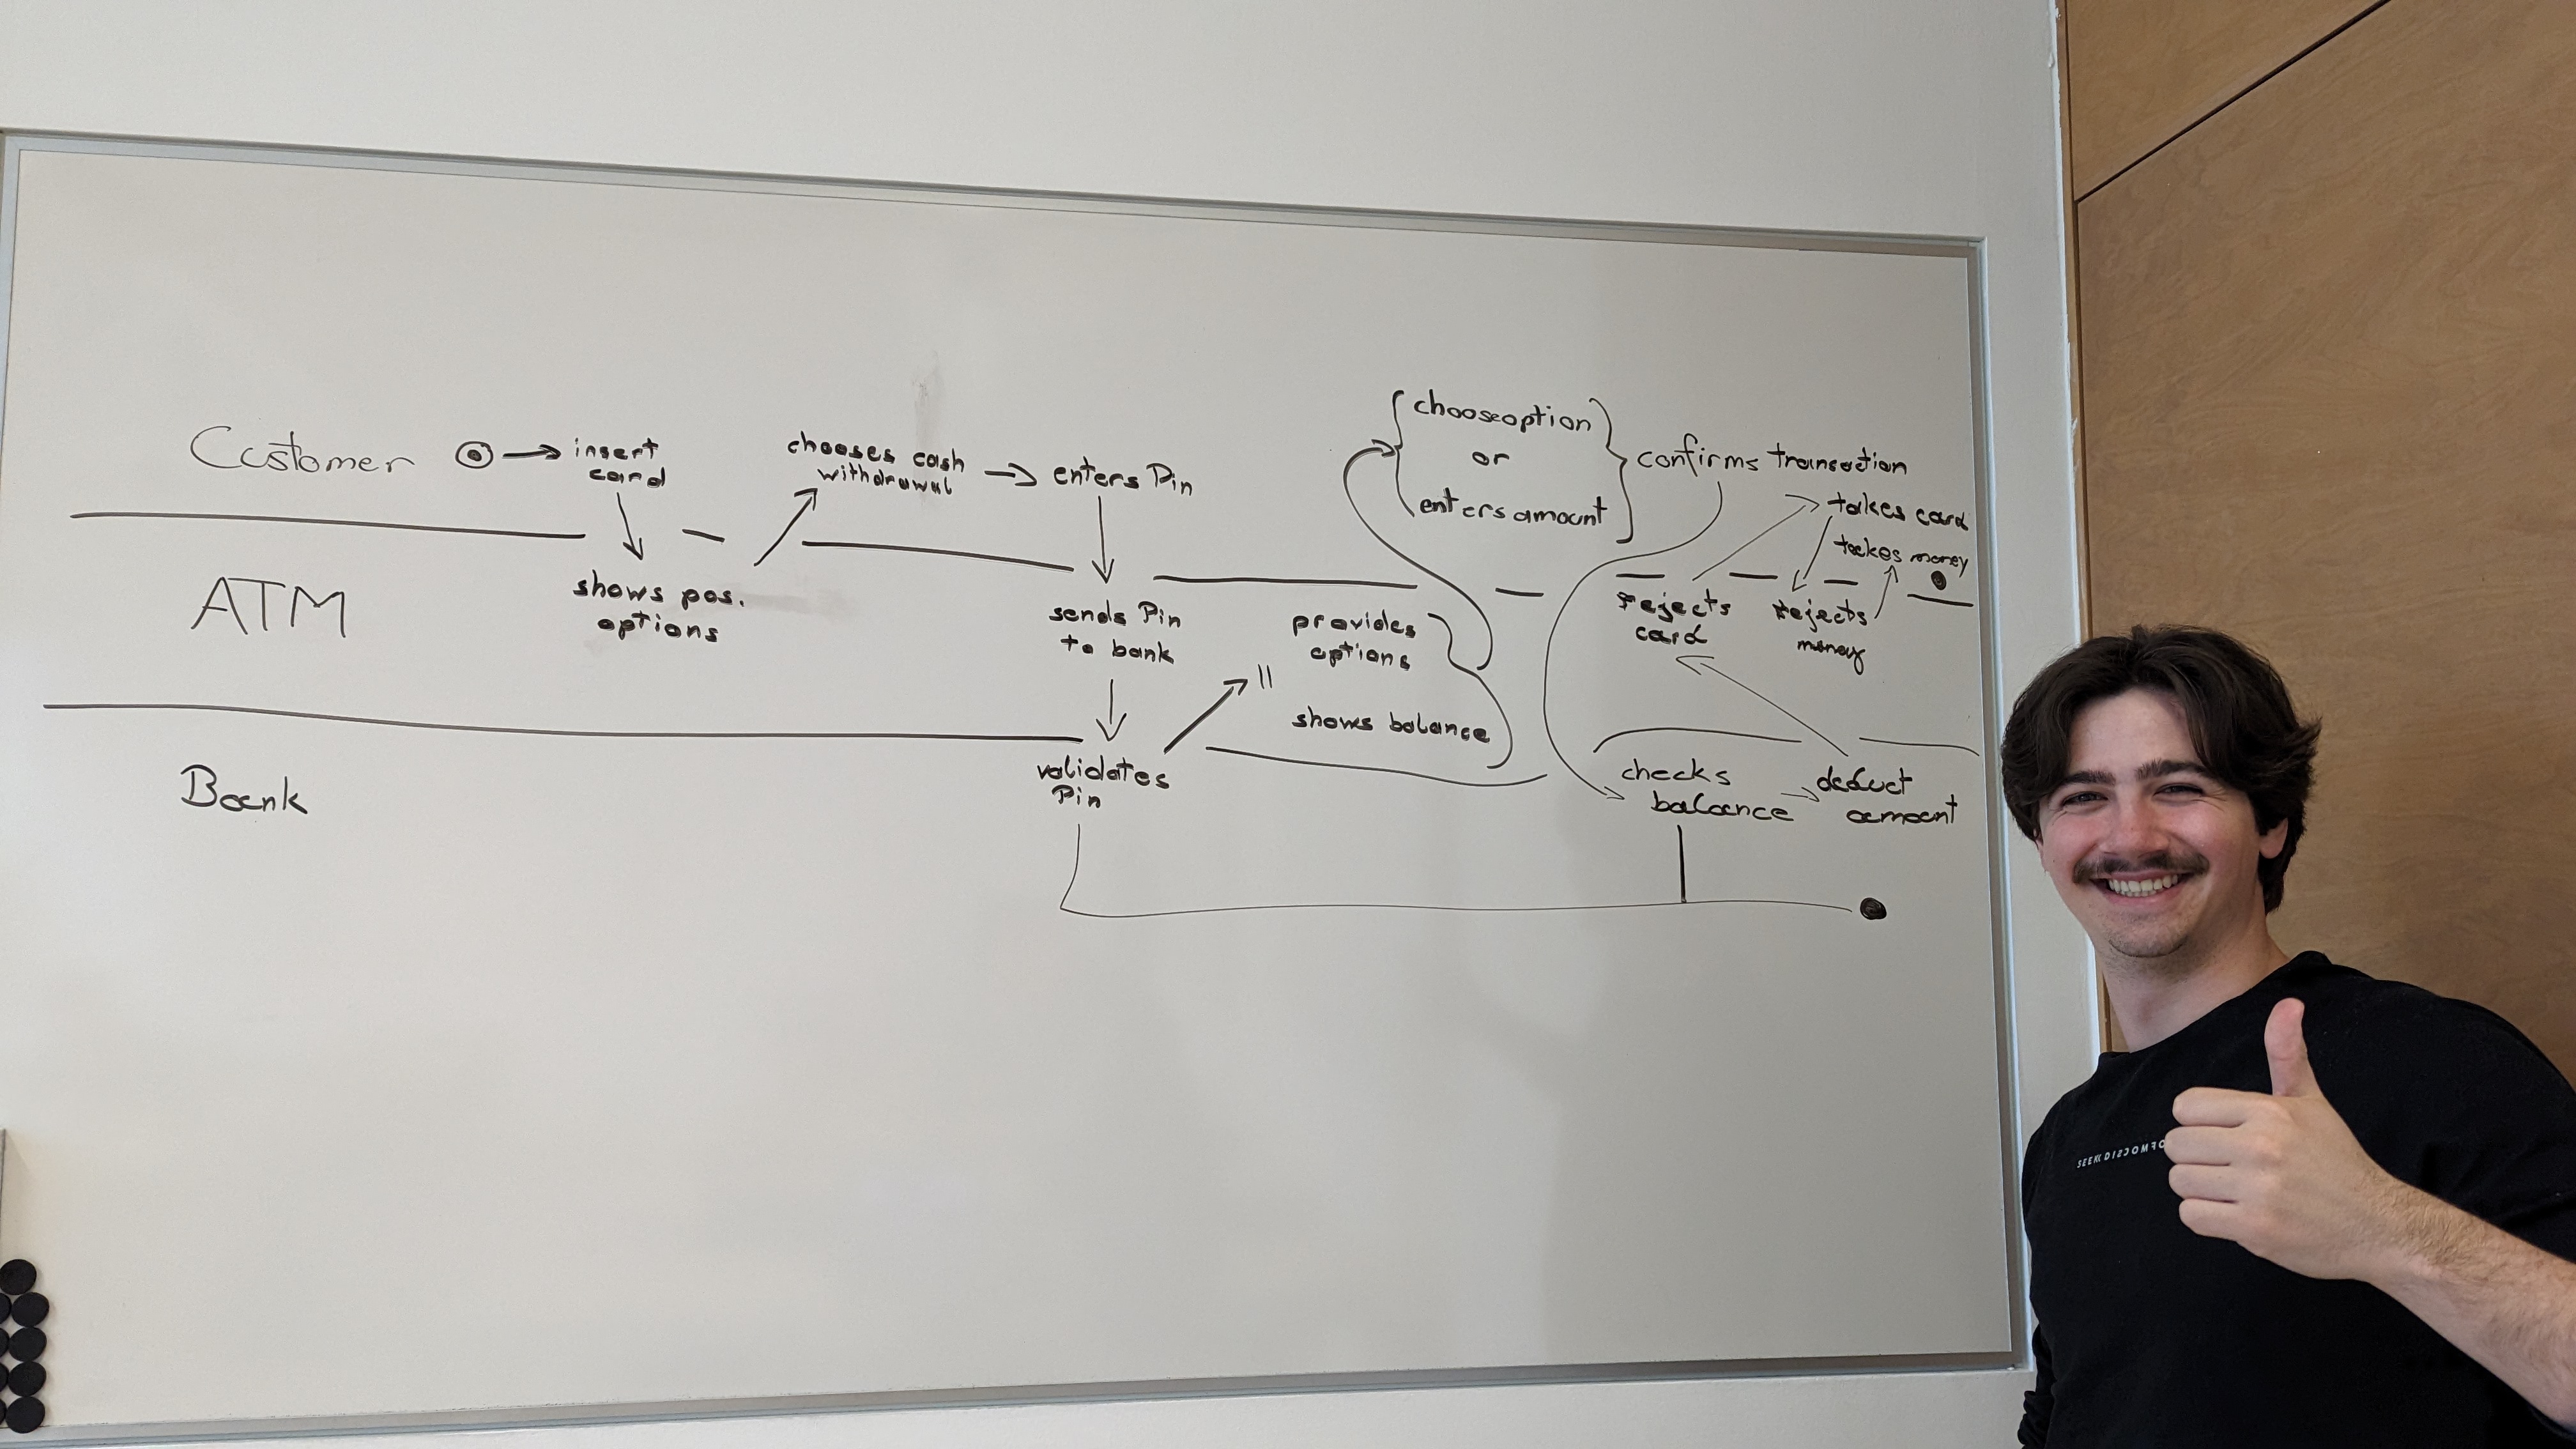 Customer
insert
card
chooses cash
withdrawal
enters Pin
chooseoption
or
enters amount
confirms transaction
takes card
takes money
ATM
shows pos.
options
sends Pin
to bank
provides
options
shows balance
rejects
card
rejects
money
Bank
validates
Pin
checks
balance
deduct
amount
SEEK DISCOMFO